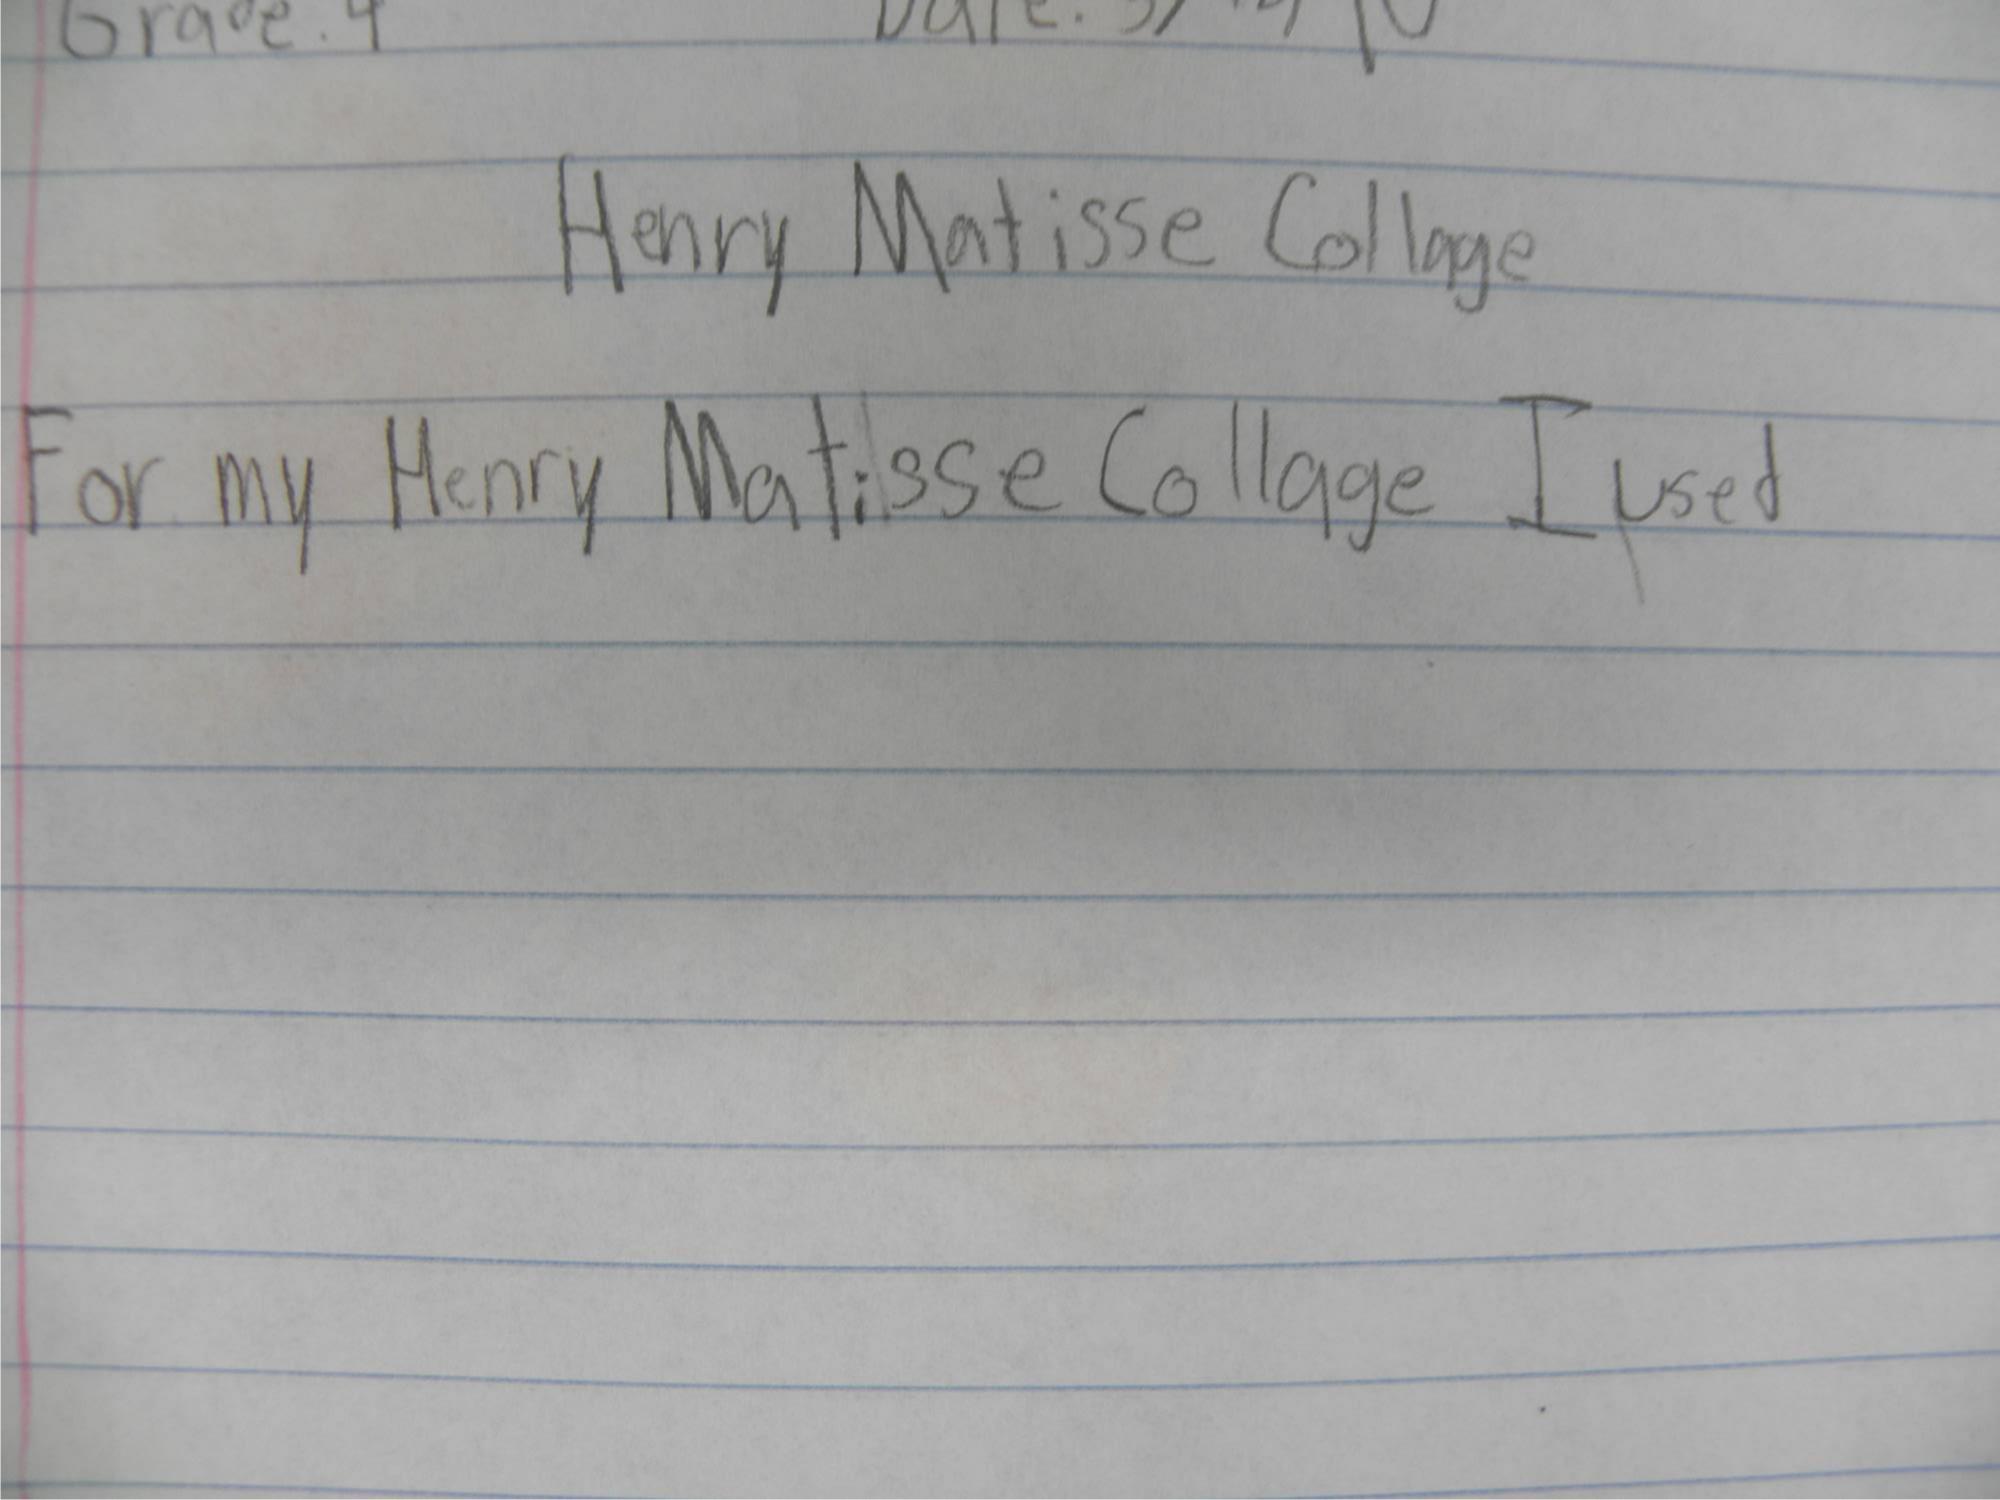 Grade: 4 Date:
Henry Matisse Collage
For my Henry Matisse Collage I used